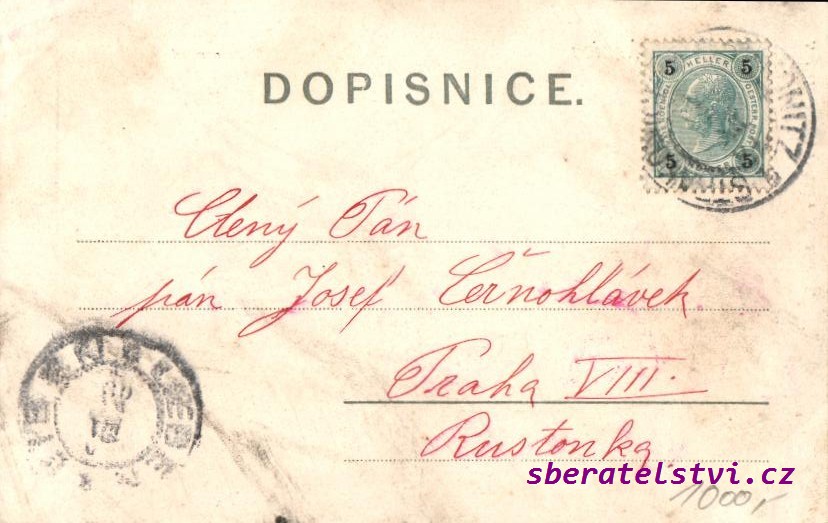 DOPISNICE.
5 HELLER 5
5 5
Ctený Pán
pán Josef Černohlávek
Praha VIII.
Rustonka
sberatelstvi.cz
1000,-